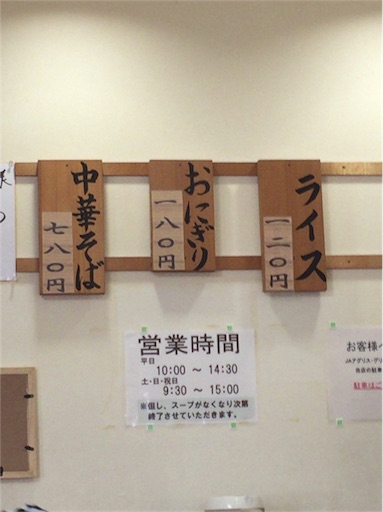 中華そば
七八〇円
おにぎり
一八〇円
ライス
一二〇円
営業時間
平日
10:00 ～ 14:30
土・日・祝日
9:30 ～ 15:00
※但し、スープがなくなり次第
終了させていただきます。
お客様へ
JAアグリス・グリ
駐車はご